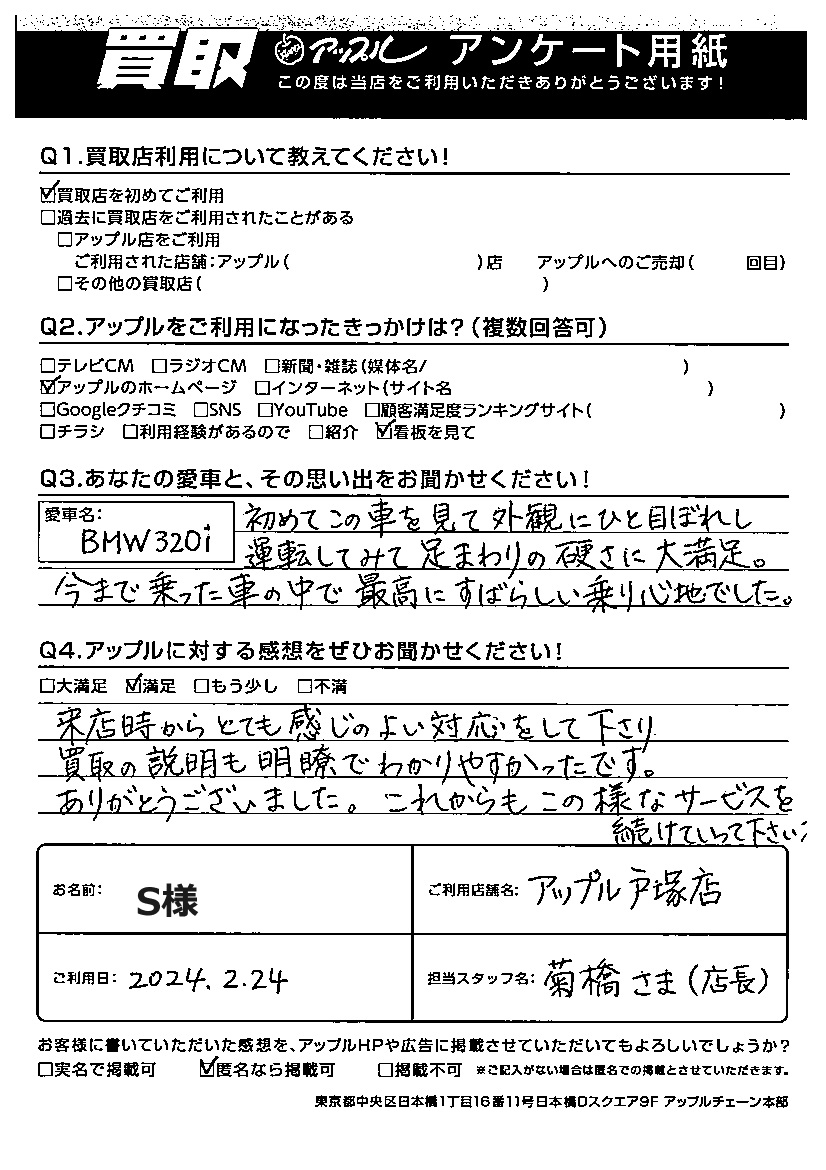 買取 アップル アンケート用紙
この度は当店をご利用いただきありがとうございます!
Q1.買取店利用について教えてください!
☑買取店を初めてご利用
□過去に買取店をご利用されたことがある
□アップル店をご利用
ご利用された店舗:アップル( )店 アップルへのご売却( 回目)
□その他の買取店( )
Q2.アップルをご利用になったきっかけは?(複数回答可)
□テレビCM □ラジオCM □新聞・雑誌(媒体名/ )
☑アップルのホームページ □インターネット(サイト名 )
□Googleクチコミ □SNS □YouTube □顧客満足度ランキングサイト( )
□チラシ □利用経験があるので □紹介 ☑看板を見て
Q3.あなたの愛車と、その思い出をお聞かせください!
愛車名:
BMW320i
初めてこの車を見て外観にひと目ぼれし
運転してみて足まわりの硬さに大満足。
今まで乗った車の中で最高にすばらしい乗り心地でした。
Q4.アップルに対する感想をぜひお聞かせください!
□大満足 ☑満足 □もう少し □不満
来店時からとても感じのよい対応をして下さり
買取の説明も明瞭でわかりやすかったです。
ありがとうございました。これからもこの様なサービスを
続けていって下さい
お名前: S様 ご利用店舗名: アップル戸塚店
ご利用日: 2024.2.24 担当スタッフ名: 菊橋さま(店長)
お客様に書いていただいた感想を、アップルHPや広告に掲載させていただいてもよろしいでしょうか?
□実名で掲載可 ☑匿名なら掲載可 □掲載不可 ※ご記入がない場合は匿名での掲載とさせていただきます。
東京都中央区日本橋1丁目16番11号日本橋Dスクエア9F アップルチェーン本部